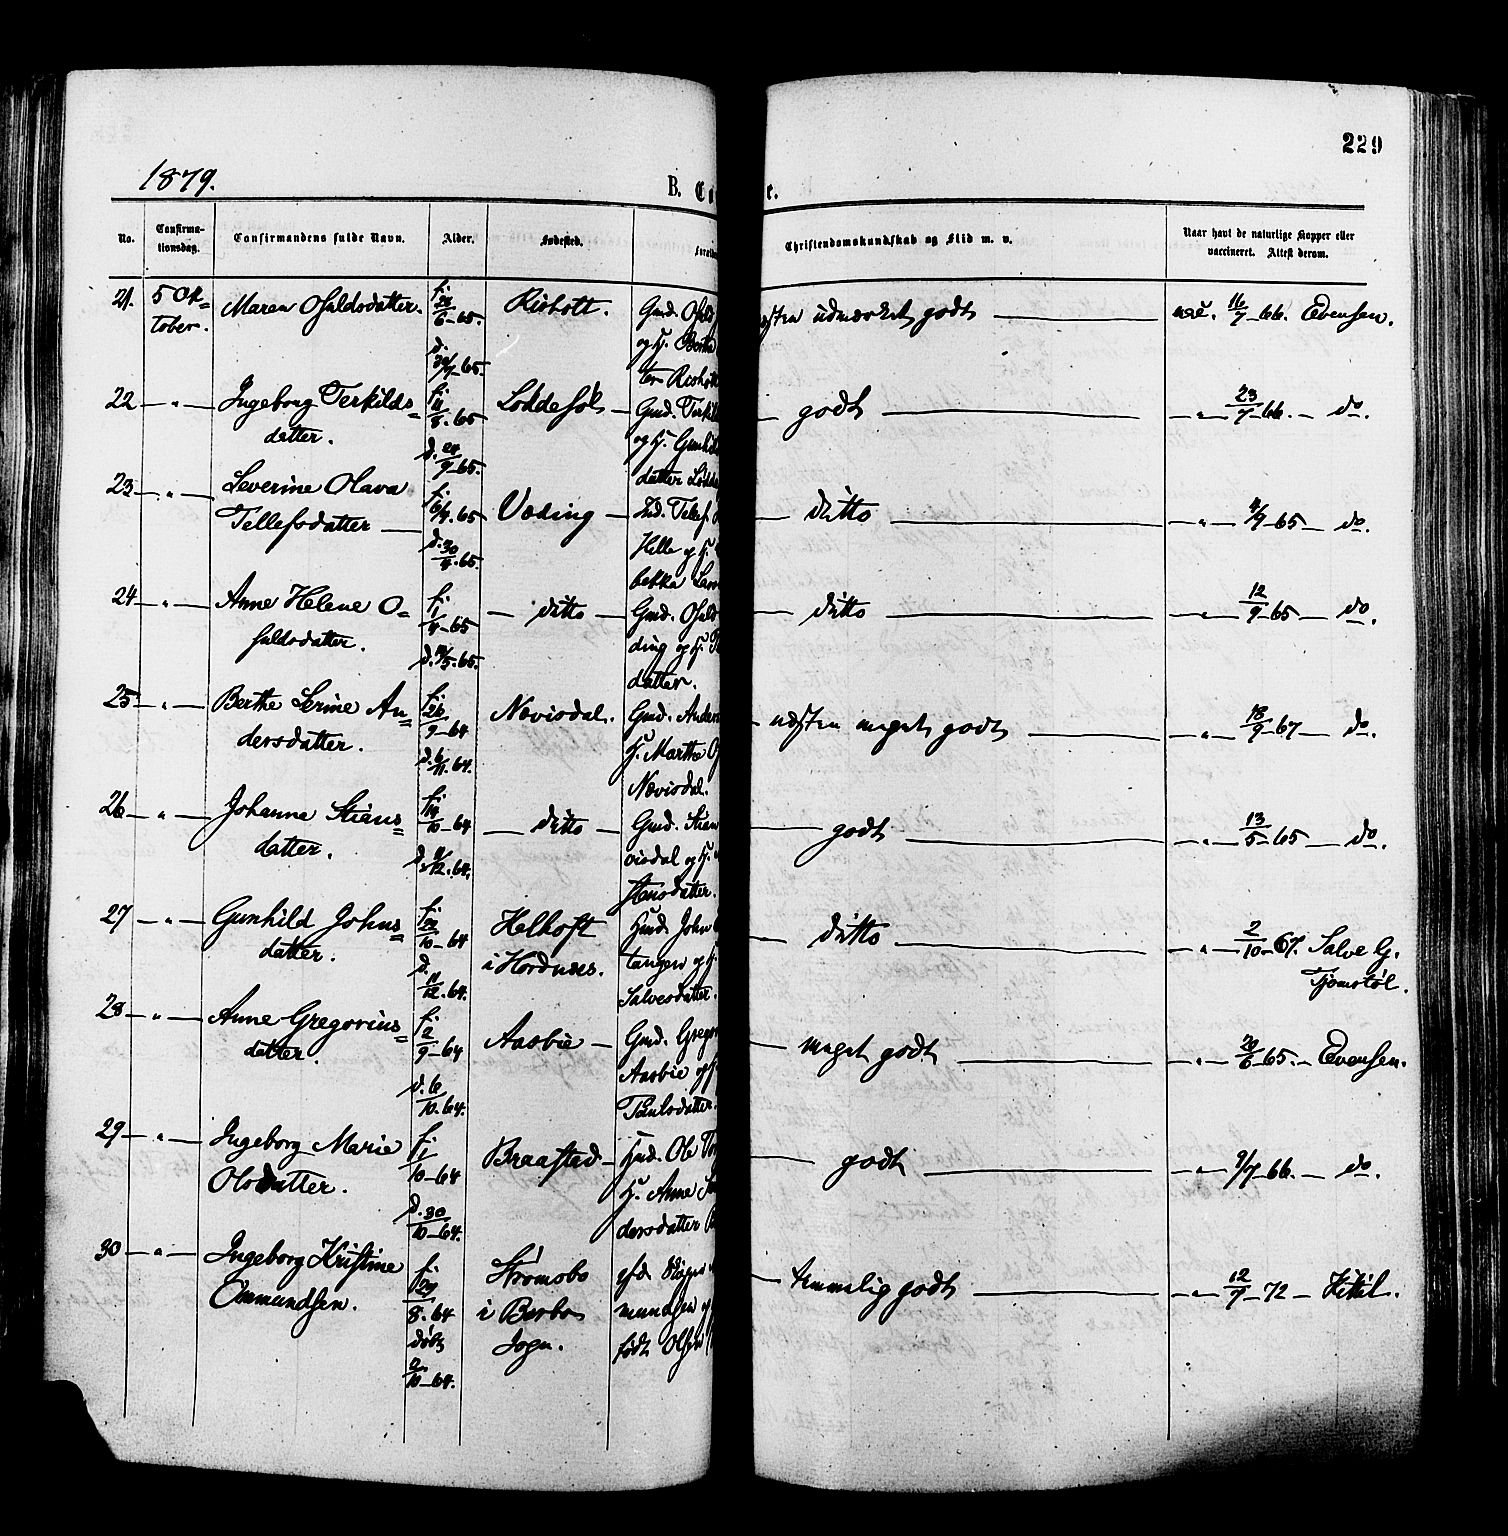 229
1879.
B. Co
e.
No.
Confirma-
tionsdag.
Confirmandens fulde Navn.
Alder.
Fødested.
Christendomskundskab og Flid m. v.
Naar havt de naturlige Kopper eller
vaccineret. Attest derom.
21. 5 Ok=
tober.
Maren Osuldsdatter.
f.
6-65.
d.
7-65.
Risholt.
Gmd. Osuld
og H. Berthe
ter Risholt
næsten udmærket godt
vac. 16/7-66. Evensen.
22 — " — Ingeborg Terkilds=
datter.
f.
8-65
d. 24/9-65.
Loddesøl —
Gmd. Terkil
og H. Gunhil
datter Lodde
— godt — " — 23/7-66. — do.
23 — " — Severine Olava
Tellefsdatter —
f.
d. 30
65.
Væding —
Ind. Tellef
Helle og H.
bekka Lars
— ditto — " — 4/9-65 — do.
24 — " — Anne Helene O=
suldsdatter.
f.
1/4-65
— ditto —
Gmd. Osuld
ding og H. T
datter.
— ditto — " — 12/9-65 do.
25 — " — Berthe Serine An=
dersdatter.
f.
26/9-64
d. 6/11-64.
Nævisdal.
Gmd. Anders
H. Marthe O
Nævisdal.
— næsten meget godt — " — 18/9-67 — do.
26 — " — Johanne Stians=
datter.
f.
10-64
d.
12-64.
— ditto —
Gmd. Stian
visdal og H.
stensdatter.
— godt — " — 13/5-65 do.
27 — " — Gunhild Johns=
datter.
f.
10-64
d.
11/12-64.
Helhoft
i Hordnæs.
Hmd. John
tangen og H.
Salvesdatter.
— ditto — " — 2/10-67. Salve G.
Tjomstøl.
28 — " — Anne Gregorius=
datter.
f.
2/9-64
d. 6/10-64.
Aasbie —
Gmd. Gregor
Aasbie og H.
Paulsdatter.
— meget godt — " — 20/6-65. — Evensen.
29 — " — Ingeborg Marie
Olsdatter.
f.
1/10-64
d. 30/10-64.
Braastad —
Hmd. Ole
H. Anne
dersdatter
— godt — " — 9/7-66. — do.
30 — " — Ingeborg Kristine
Ommundsen.
f.
29/8-64
døbt
10-64.
Strømsbo
i Barbo
Sogn.
mundsen og
født Olsen
— temmelig godt — " — 12/7-72 — Kittil.